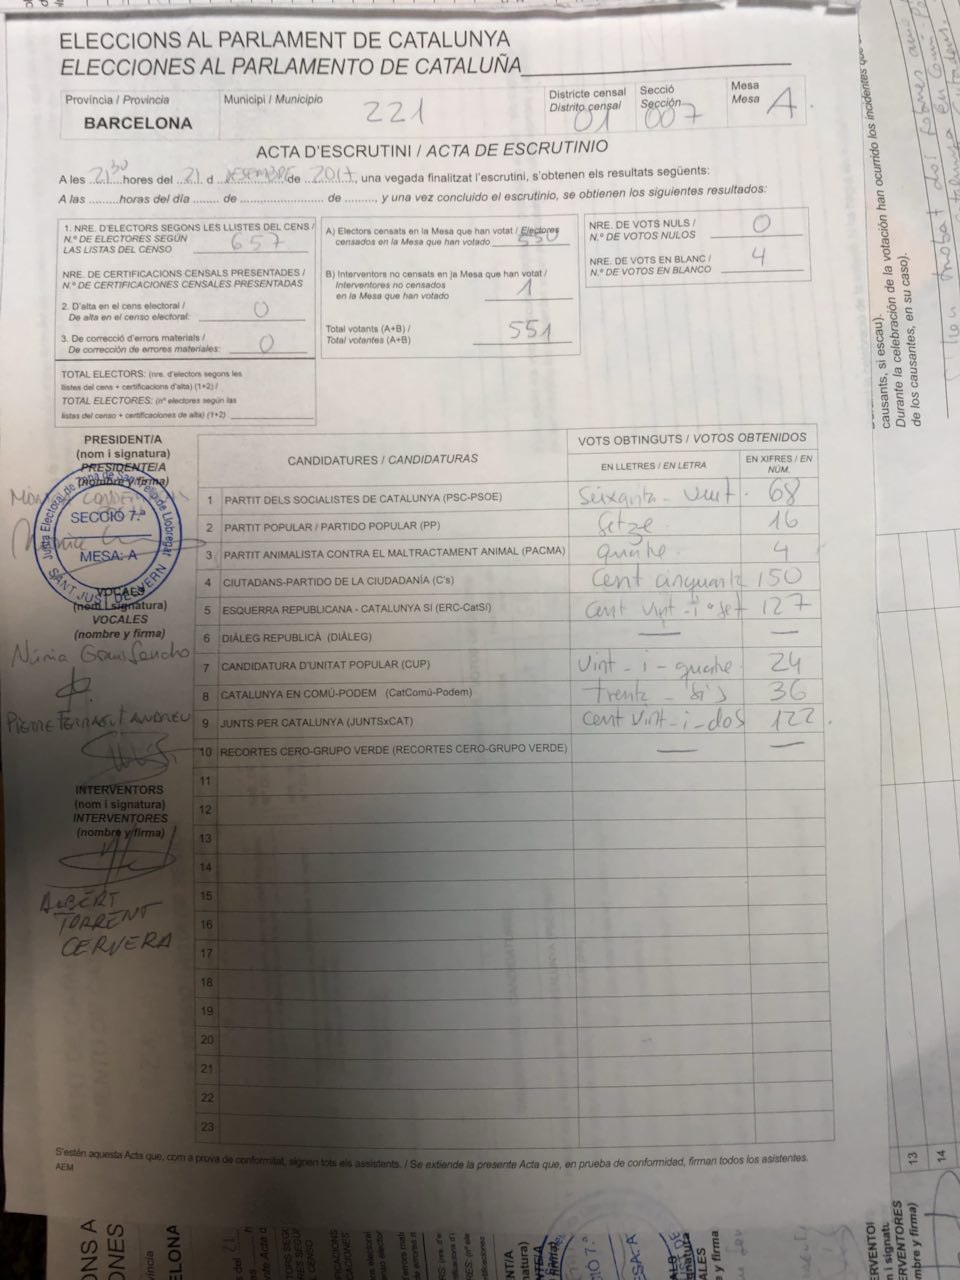 ELECCIONS AL PARLAMENT DE CATALUNYA
ELECCIONES AL PARLAMENTO DE CATALUÑA
Província / Provincia
BARCELONA
Municipi / Municipio
221
Districte censal
Distrito censal
01
Secció
Sección
007
Mesa
Mesa
A.
ACTA D'ESCRUTINI / ACTA DE ESCRUTINIO
A les 21'30 hores del 21 d DESEMBRE de 2017, una vegada finalitzat l'escrutini, s'obtenen els resultats següents:
A las ......... horas del día ........ de ........................ de ........., y una vez concluido el escrutinio, se obtienen los siguientes resultados:
1. NRE. D'ELECTORS SEGONS LES LLISTES DEL CENS /
N.º DE ELECTORES SEGÚN
LAS LISTAS DEL CENSO
657
NRE. DE CERTIFICACIONS CENSALS PRESENTADES /
N.º DE CERTIFICACIONES CENSALES PRESENTADAS
2. D'alta en el cens electoral /
De alta en el censo electoral:
0
3. De correcció d'errors materials /
De corrección de errores materiales:
0
TOTAL ELECTORS: (nre. d'electors segons les
llistes del cens + certificacions d'alta) (1+2) /
TOTAL ELECTORES: (nº electores según las
listas del censo + certificaciones de alta) (1+2)
A) Electors censats en la Mesa que han votat / Electores
censados en la Mesa que han votado
550
B) Interventors no censats en la Mesa que han votat /
Interventores no censados
en la Mesa que han votado
1
Total votants (A+B) /
Total votantes (A+B)
551
NRE. DE VOTS NULS /
N.º DE VOTOS NULOS
0
NRE. DE VOTS EN BLANC /
N.º DE VOTOS EN BLANCO
4
PRESIDENT/A
(nom i signatura)
PRESIDENTE/A
(nombre y firma)
Junta Electoral de Zona de Sant Feliu de Llobregat
SECCIÓ 7.ª
MESA: A
SANT JUST DESVERN
VOCALS
(nom i signatura)
VOCALES
(nombre y firma)
Núria
PIERRE FERRAGUT ANDREU
INTERVENTORS
(nom i signatura)
INTERVENTORES
(nombre y firma)
ALBERT
TORRENT
CERVERA
CANDIDATURES / CANDIDATURAS
VOTS OBTINGUTS / VOTOS OBTENIDOS
EN LLETRES / EN LETRA
EN XIFRES / EN NÚM.
1 PARTIT DELS SOCIALISTES DE CATALUNYA (PSC-PSOE) Seixanta-vuit. 68
2 PARTIT POPULAR / PARTIDO POPULAR (PP) Setze 16
3 PARTIT ANIMALISTA CONTRA EL MALTRACTAMENT ANIMAL (PACMA) quatre 4
4 CIUTADANS-PARTIDO DE LA CIUDADANÍA (C's) Cent cinquanta 150
5 ESQUERRA REPUBLICANA - CATALUNYA SÍ (ERC-CatSí) Cent vint-i-set 127
6 DIÀLEG REPUBLICÀ (DIÀLEG) — —
7 CANDIDATURA D'UNITAT POPULAR (CUP) Vint-i-quatre 24
8 CATALUNYA EN COMÚ-PODEM (CatComú-Podem) trenta-sis 36
9 JUNTS PER CATALUNYA (JUNTSxCAT) Cent Vint-i-dos 122.
10 RECORTES CERO-GRUPO VERDE (RECORTES CERO-GRUPO VERDE) — —
11
12
13
14
15
16
17
18
19
20
21
22
23
S'estén aquesta Acta que, com a prova de conformitat, signen tots els assistents. / Se extiende la presente Acta que, en prueba de conformidad, firman todos los asistentes.
AEM
causants, si escau).
Durante la celebración de la votación han ocurrido los incidentes que
de los causantes, en su caso).
13
14